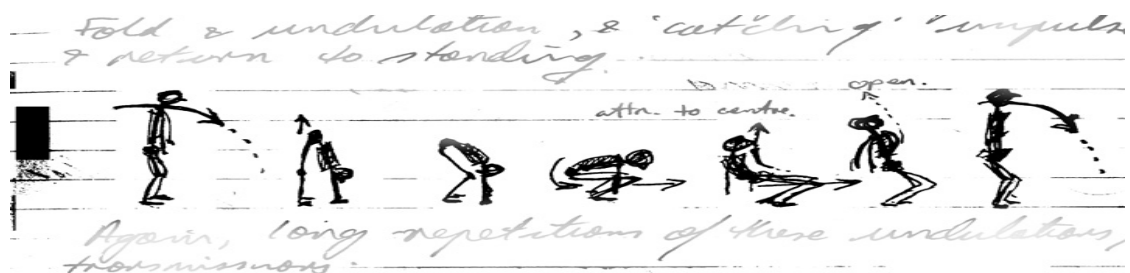 Fold & undulation, & 'catching' impulse
& return to standing.
open.
attn. to centre.
Again, long repetitions of these undulations,
transmissions.